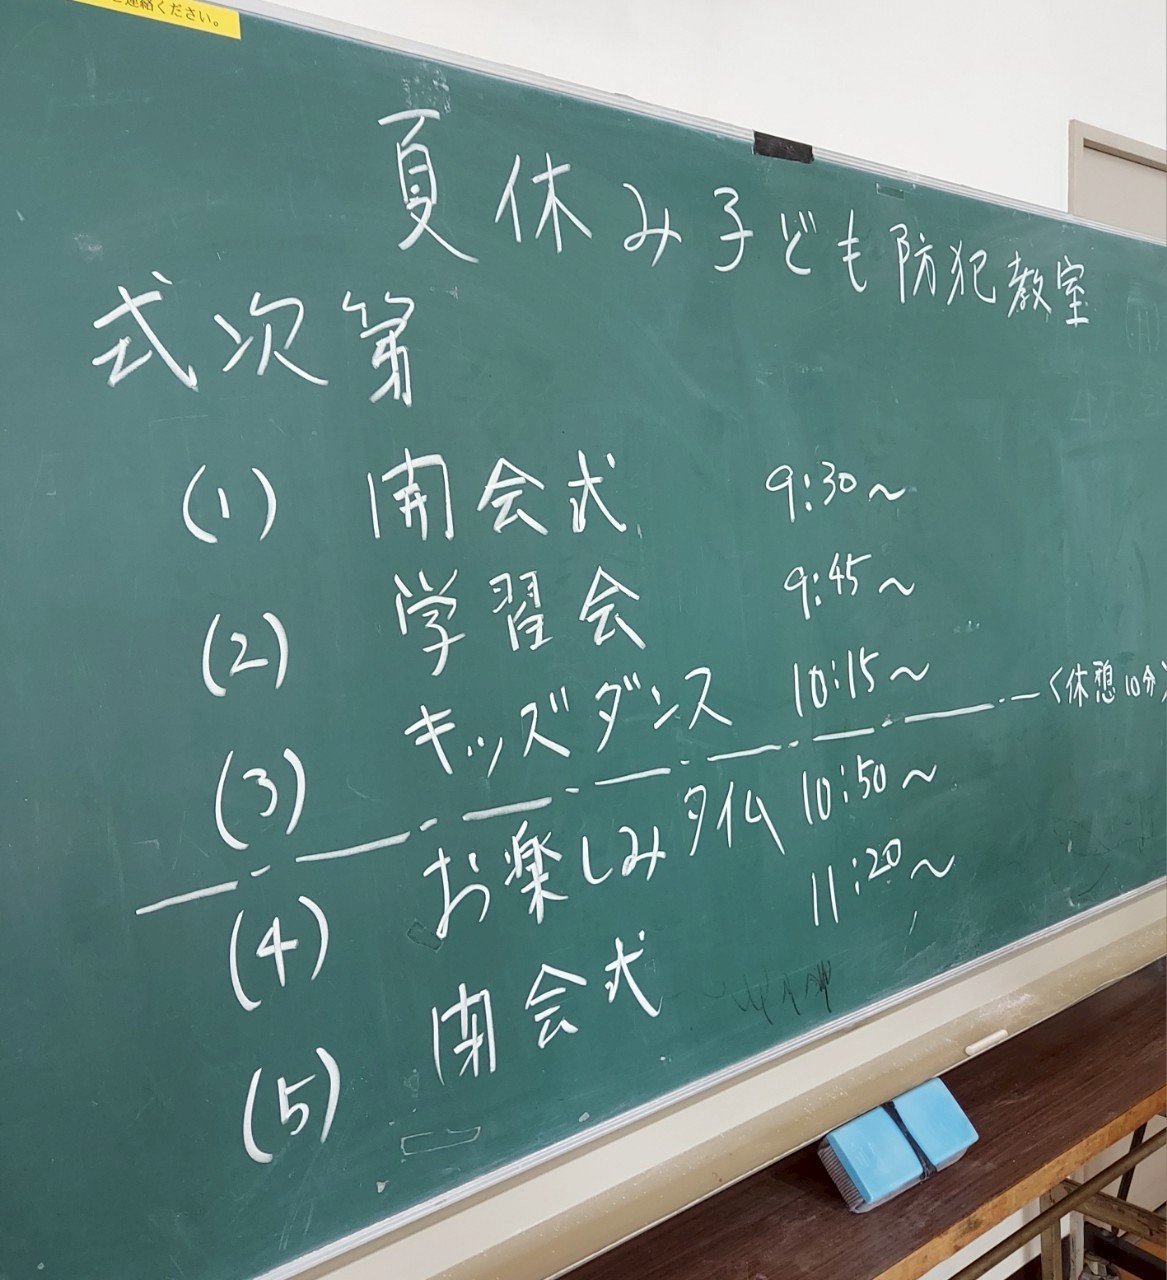 連絡ください。
夏休み子ども防犯教室
式次第
(1) 開会式 9:30～
(2) 学習会 9:45～
(3) キッズダンス 10:15～
〈休憩10分〉
(4) お楽しみタイム 10:50～
(5) 閉会式 11:20～